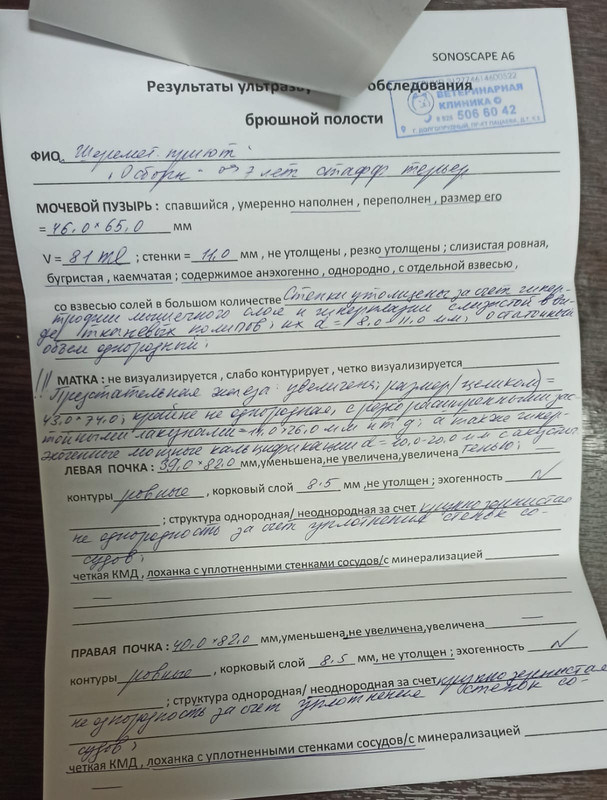 SONOSCAPE A6
Результаты обследования
брюшной полости
ВЕТЕРИНАРНАЯ
КЛИНИКА
506 60 42
Г. ДОЛГОПРУДНЫЙ, ПР-КТ ПАЦАЕВА, Д.7
ФИО. Шеремет. приют
7 лет стафф терьер
МОЧЕВОЙ ПУЗЫРЬ : спавшийся , умеренно наполнен , переполнен , размер его
= 46,0 × 65,0 мм
V = 81 ml ; стенки = 11,0 мм , не утолщены , резко утолщены ; слизистая ровная,
бугристая , каемчатая ; содержимое анэхогенно , однородно , с отдельной взвесью ,
со взвесью солей в большом количестве Стенки утолщены за счет гипер-
трофии мышечного слоя и гиперплазии слизистой в ви-
де тканевых полипов, их d = 8,0 × 11,0 мм, остаточный
объем однородный.
!!! МАТКА : не визуализируется , слабо контурирует , четко визуализируется
Предстательная железа увеличена, размер (целиком) =
43,0 × 74,0, крайне не однородная, с резко расширенными зас-
тойными лакунами = 14,0 × 26,0 мм и т д, а также гипер-
эхогенные мощные кальцификации d = 20,0 мм с акустич
ЛЕВАЯ ПОЧКА : 39,0 × 82,0 мм,уменьшена,не увеличена,увеличена тенью;
контуры ровные , корковый слой 8.5 мм ,не утолщен ; эхогенность N
; структура однородная/ неоднородная за счет крупнозернистая
не однородность за счет уплотнения стенок со-
судов;
четкая КМД , лоханка с уплотненными стенками сосудов/с минерализацией
ПРАВАЯ ПОЧКА : 40,0 × 82,0 мм,уменьшена,не увеличена,увеличена
контуры ровные , корковый слой 8.5 мм, не утолщен ; эхогенность N
; структура однородная/ неоднородная за счет крупнозернистая
не однородность за счет уплотнения стенок со-
судов;
четкая КМД , лоханка с уплотненными стенками сосудов/с минерализацией